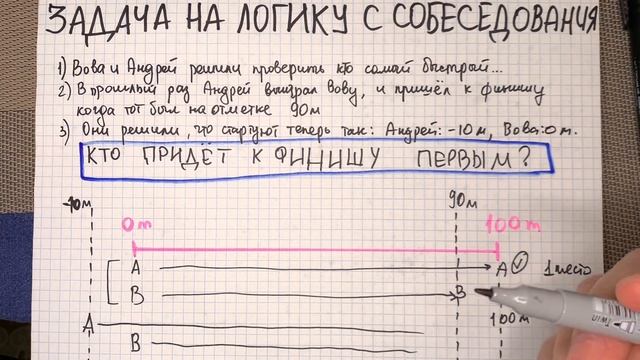 ЗАДАЧА НА ЛОГИКУ С СОБЕСЕДОВАНИЯ
1) Вова и Андрей решили проверить кто самый быстрый...
2) В прошлый раз Андрей выиграл Вову, и пришёл к финишу
когда тот был на отметке 90м
3) Они решили, что стартуют теперь так: Андрей: -10м, Вова: 0м.
КТО ПРИДЁТ К ФИНИШУ ПЕРВЫМ?
-10м 90м
0m 100m
А А 1 место
В В
100м
А
В
TWIN